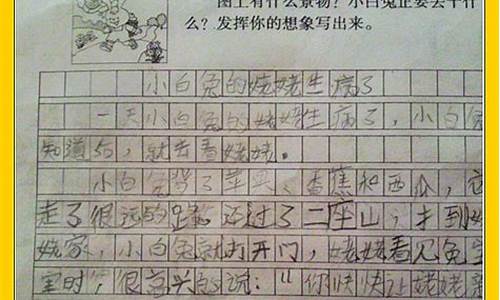 图上有什么景物？小白兔正要去干什
么？发挥你的想象写出来。
小白兔的姥姥生病了
一天小白兔的姥姥生病了，小白兔
知道后，就去看姥姥。
小白兔背了苹果、香蕉和西瓜，它
走了很远的路，还过了二座山，才到姥
姥家，小白兔就打开门，姥姥看见兔宝
宝时，很高兴的说：“你快快让姥姥亲